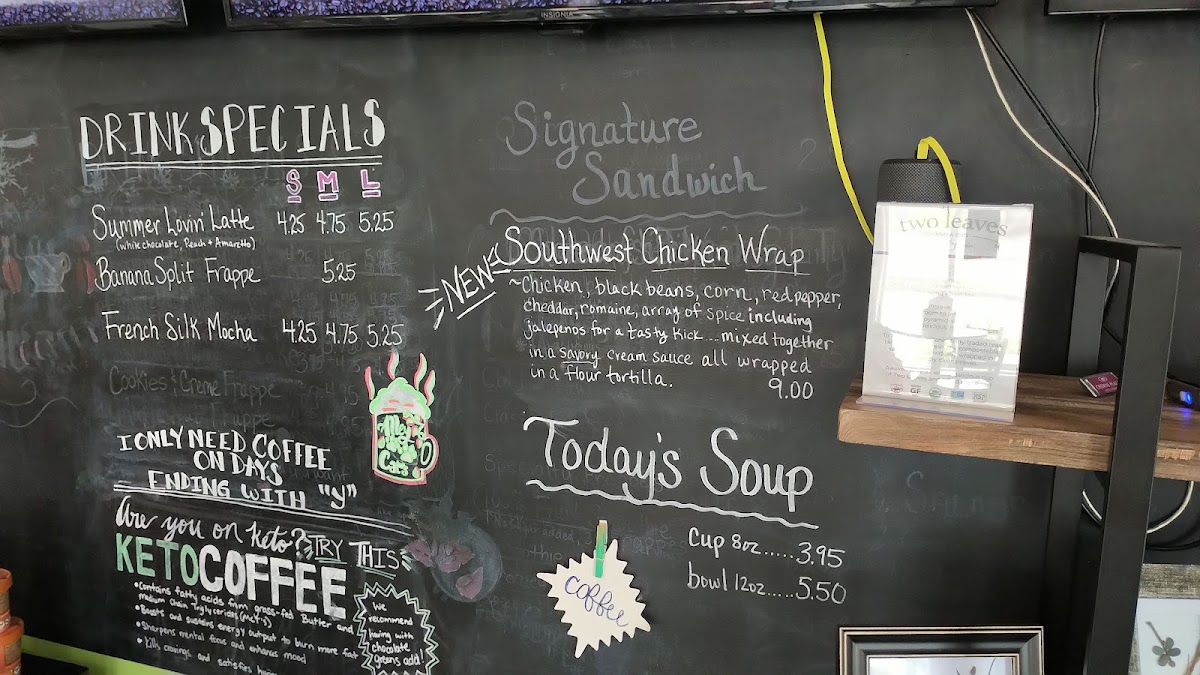 INSIGNIA
DRINK SPECIALS
S M L
Summer Lovin' Latte 4.25 4.75 5.25
(white chocolate, Peach + Amaretto)
Banana Split Frappe 5.25
French Silk Mocha 4.25 4.75 5.25
Cookies & Creme Frappe
I ONLY NEED COFFEE
ON DAYS
ENDING WITH "y"
Are you on keto? TRY THIS
KETO COFFEE
• Contains fatty acids from grass-fed Butter and
medium chain Triglycerides (MCT's)
• Boosts and sustains energy output to burn more fat
• Sharpens mental focus and enhances mood
• Kills cravings and satisfies
We
recommend
having with
chocolate
greens add!
Me
Cats
Signature
Sandwich
NEW
Southwest Chicken Wrap
~Chicken, black beans, corn, red pepper,
cheddar, romaine, array of spice including
jalepenos for a tasty kick...mixed together
in a savory cream sauce all wrapped
in a flour tortilla. 9.00
Today's Soup
Cup 8oz.....3.95
bowl 12oz.....5.50
coffee
two leaves
GF